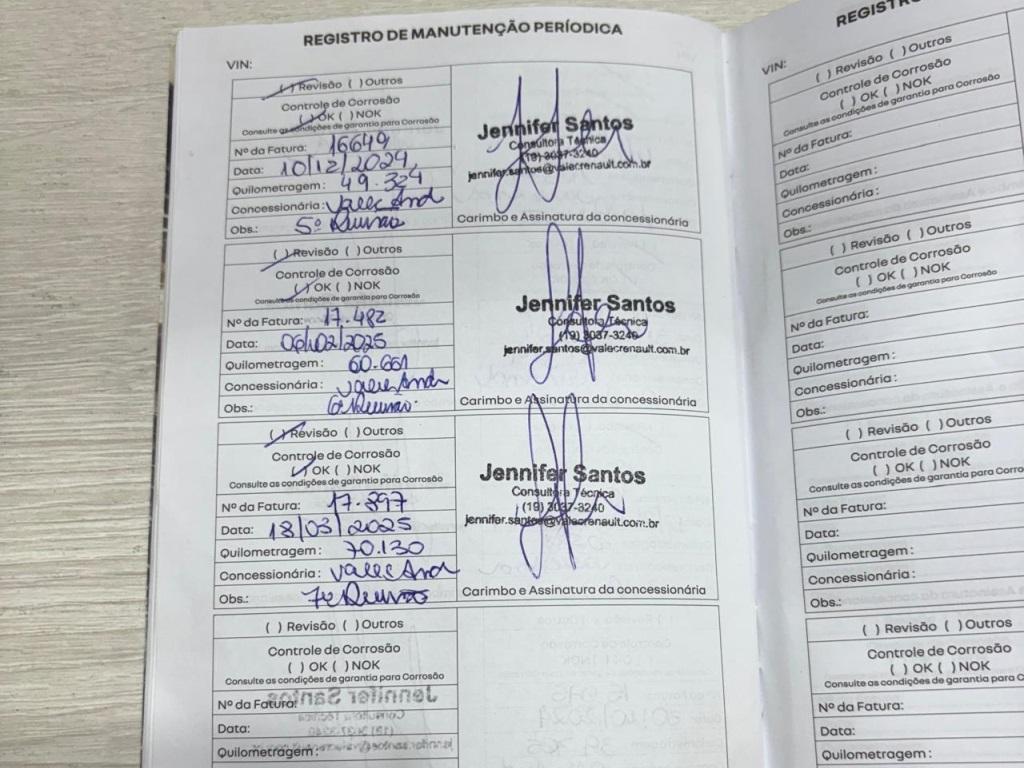 REGISTRO DE MANUTENÇÃO PERÍODICA
VIN:
( ) Revisão ( ) Outros
Controle de Corrosão
( ) OK ( ) NOK
Consulte as condições de garantia para Corrosão
Nº da Fatura: 16649
Data: 10/12/2024
Quilometragem: 49.324
Concessionária: Valec And
Obs.: 5º Revisão
Jennifer Santos
Consultora Técnica
(19) 3037-3240
jennifer.santos@valecrenault.com.br
Carimbo e Assinatura da concessionária
( ) Revisão ( ) Outros
Controle de Corrosão
( ) OK ( ) NOK
Consulte as condições de garantia para Corrosão
Nº da Fatura: 17.482
Data: 06/02/2025
Quilometragem: 60.661
Concessionária: Valec And
Obs.: 6º Revisão.
Jennifer Santos
Consultora Técnica
(19) 3037-3240
jennifer.santos@valecrenault.com.br
Carimbo e Assinatura da concessionária
( ) Revisão ( ) Outros
Controle de Corrosão
( ) OK ( ) NOK
Consulte as condições de garantia para Corrosão
Nº da Fatura: 17.897
Data: 13/03/2025
Quilometragem: 70.130
Concessionária: Valec And
Obs.: 7º Revisão
Jennifer Santos
Consultora Técnica
(19) 3037-3240
jennifer.santos@valecrenault.com.br
Carimbo e Assinatura da concessionária
( ) Revisão ( ) Outros
Controle de Corrosão
( ) OK ( ) NOK
Consulte as condições de garantia para Corrosão
Nº da Fatura:
Data:
Quilometragem:
VIN:
( ) Revisão ( ) Outros
Controle de Corrosão
( ) OK ( ) NOK
Consulte as condições de garantia para Corrosão
Nº da Fatura:
Data:
Quilometragem:
Concessionária:
Obs.:
( ) Revisão ( ) Outros
Controle de Corrosão
( ) OK ( ) NOK
Consulte as condições de garantia para Corrosão
Nº da Fatura:
Data:
Quilometragem:
Concessionária:
Obs.:
( ) Revisão ( ) Outros
Controle de Corrosão
( ) OK ( ) NOK
Consulte as condições de garantia para
Nº da Fatura:
Data:
Quilometragem:
Concessionária:
Obs.:
( ) Revisão ( ) Outros
Controle de Corrosão
( ) OK ( ) NOK
Consulte as condições de garantia para
Nº da Fatura:
Data:
Quilometragem: